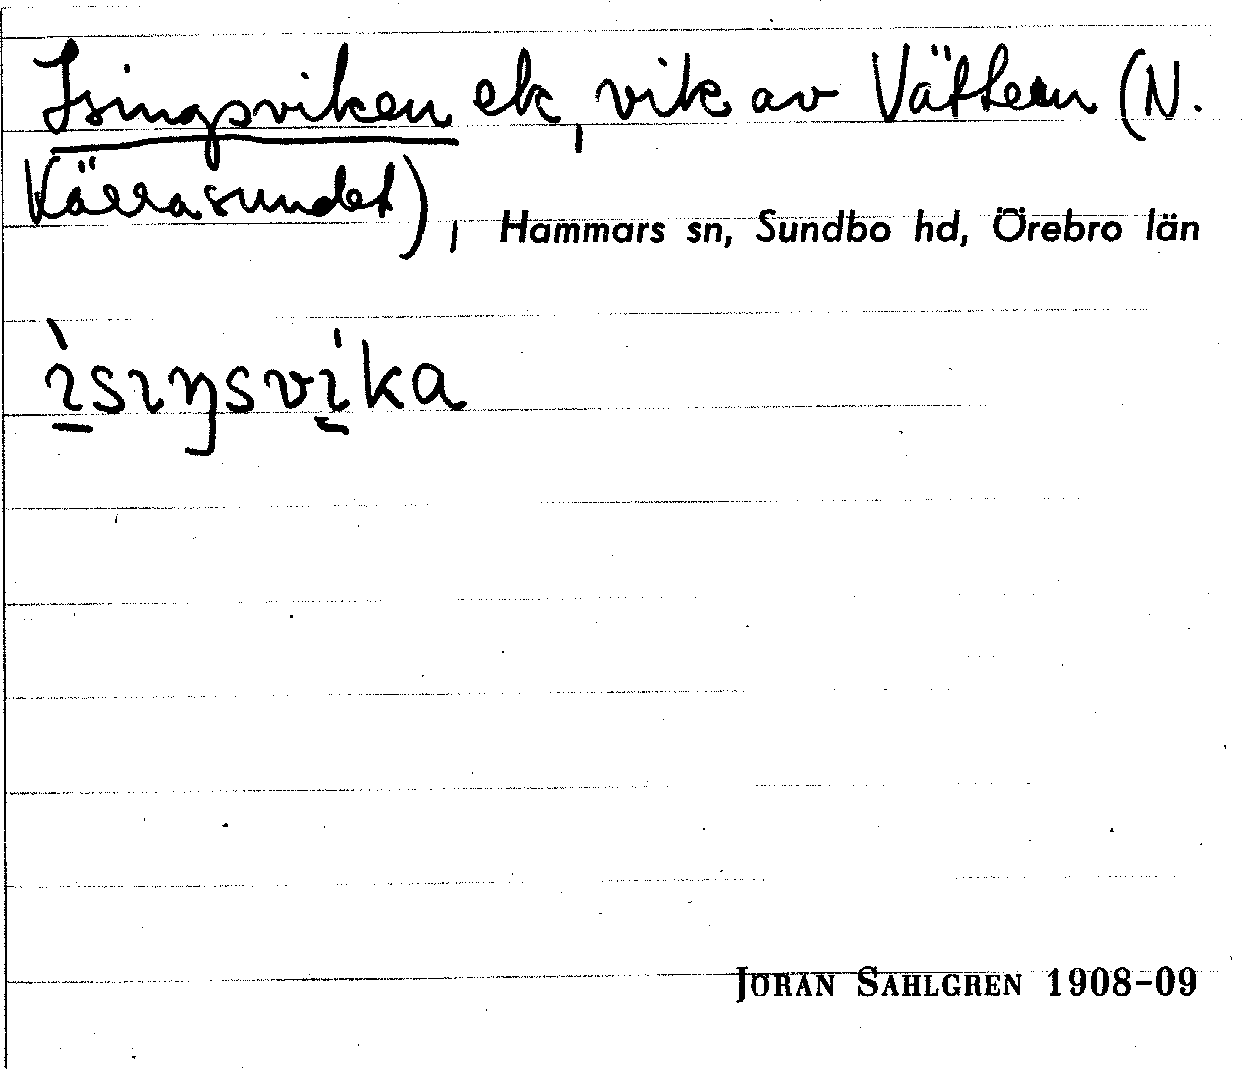 Isingsviken ek, vik av Vättern (N.
Kärrasundet), Hammars sn, Sundbo hd, Örebro län
ı̱̀sıŋsvı̱́ka
JÖRAN SAHLGREN 1908-09